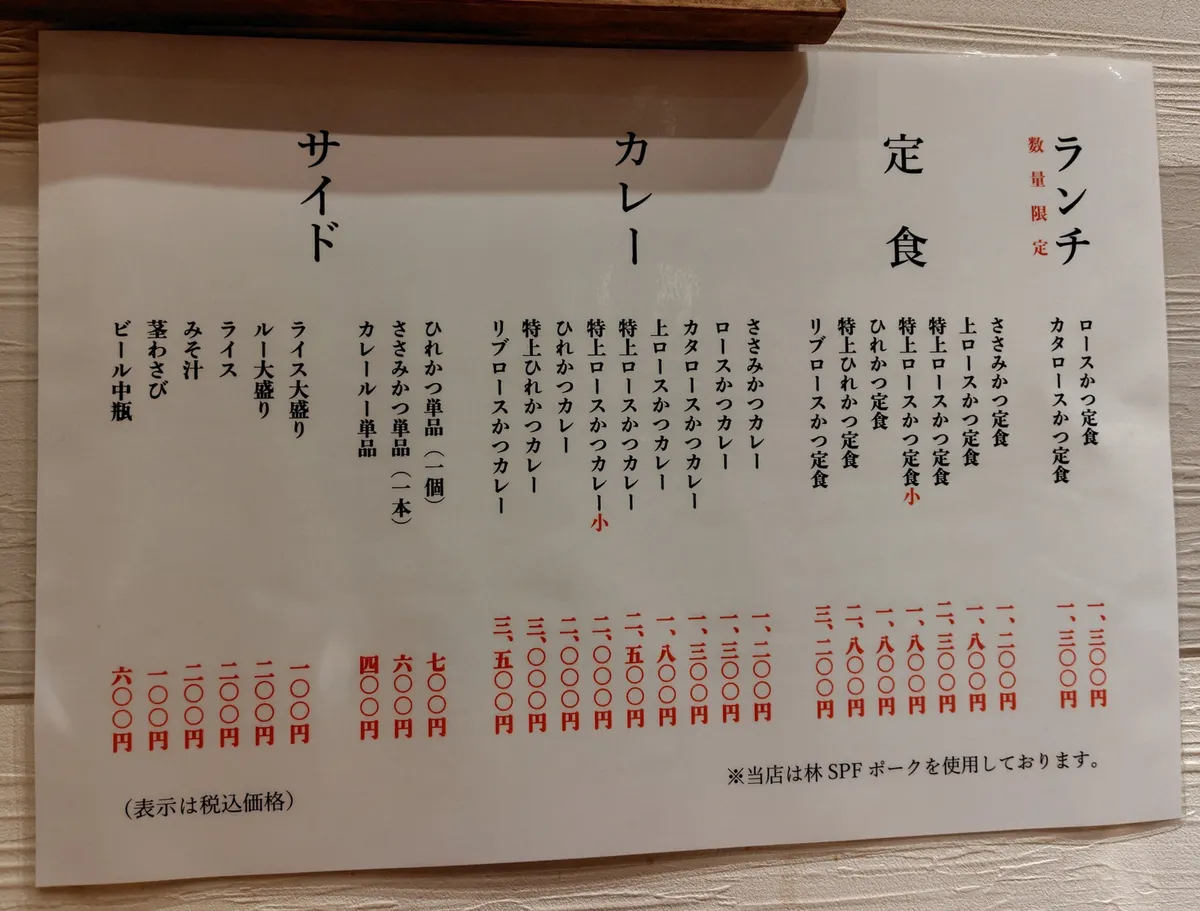 ランチ
数量限定
ロースかつ定食 一、三〇〇円
カタロースかつ定食 一、三〇〇円
定食
ささみかつ定食 一、二〇〇円
上ロースかつ定食 一、八〇〇円
特上ロースかつ定食 二、三〇〇円
特上ロースかつ定食小 一、八〇〇円
ひれかつ定食 一、八〇〇円
特上ひれかつ定食 二、八〇〇円
リブロースかつ定食 三、二〇〇円
カレー
ささみかつカレー 一、二〇〇円
ロースかつカレー 一、三〇〇円
カタロースかつカレー 一、三〇〇円
上ロースかつカレー 一、八〇〇円
特上ロースかつカレー 二、五〇〇円
特上ロースかつカレー小 二、〇〇〇円
ひれかつカレー 二、〇〇〇円
特上ひれかつカレー 三、〇〇〇円
リブロースかつカレー 三、五〇〇円
サイド
ひれかつ単品（一個） 七〇〇円
ささみかつ単品（一本） 六〇〇円
カレールー単品 四〇〇円
ライス大盛り 一〇〇円
ルー大盛り 二〇〇円
ライス 二〇〇円
みそ汁 二〇〇円
茎わさび 一〇〇円
ビール中瓶 六〇〇円
※当店は林SPFポークを使用しております。
（表示は税込価格）